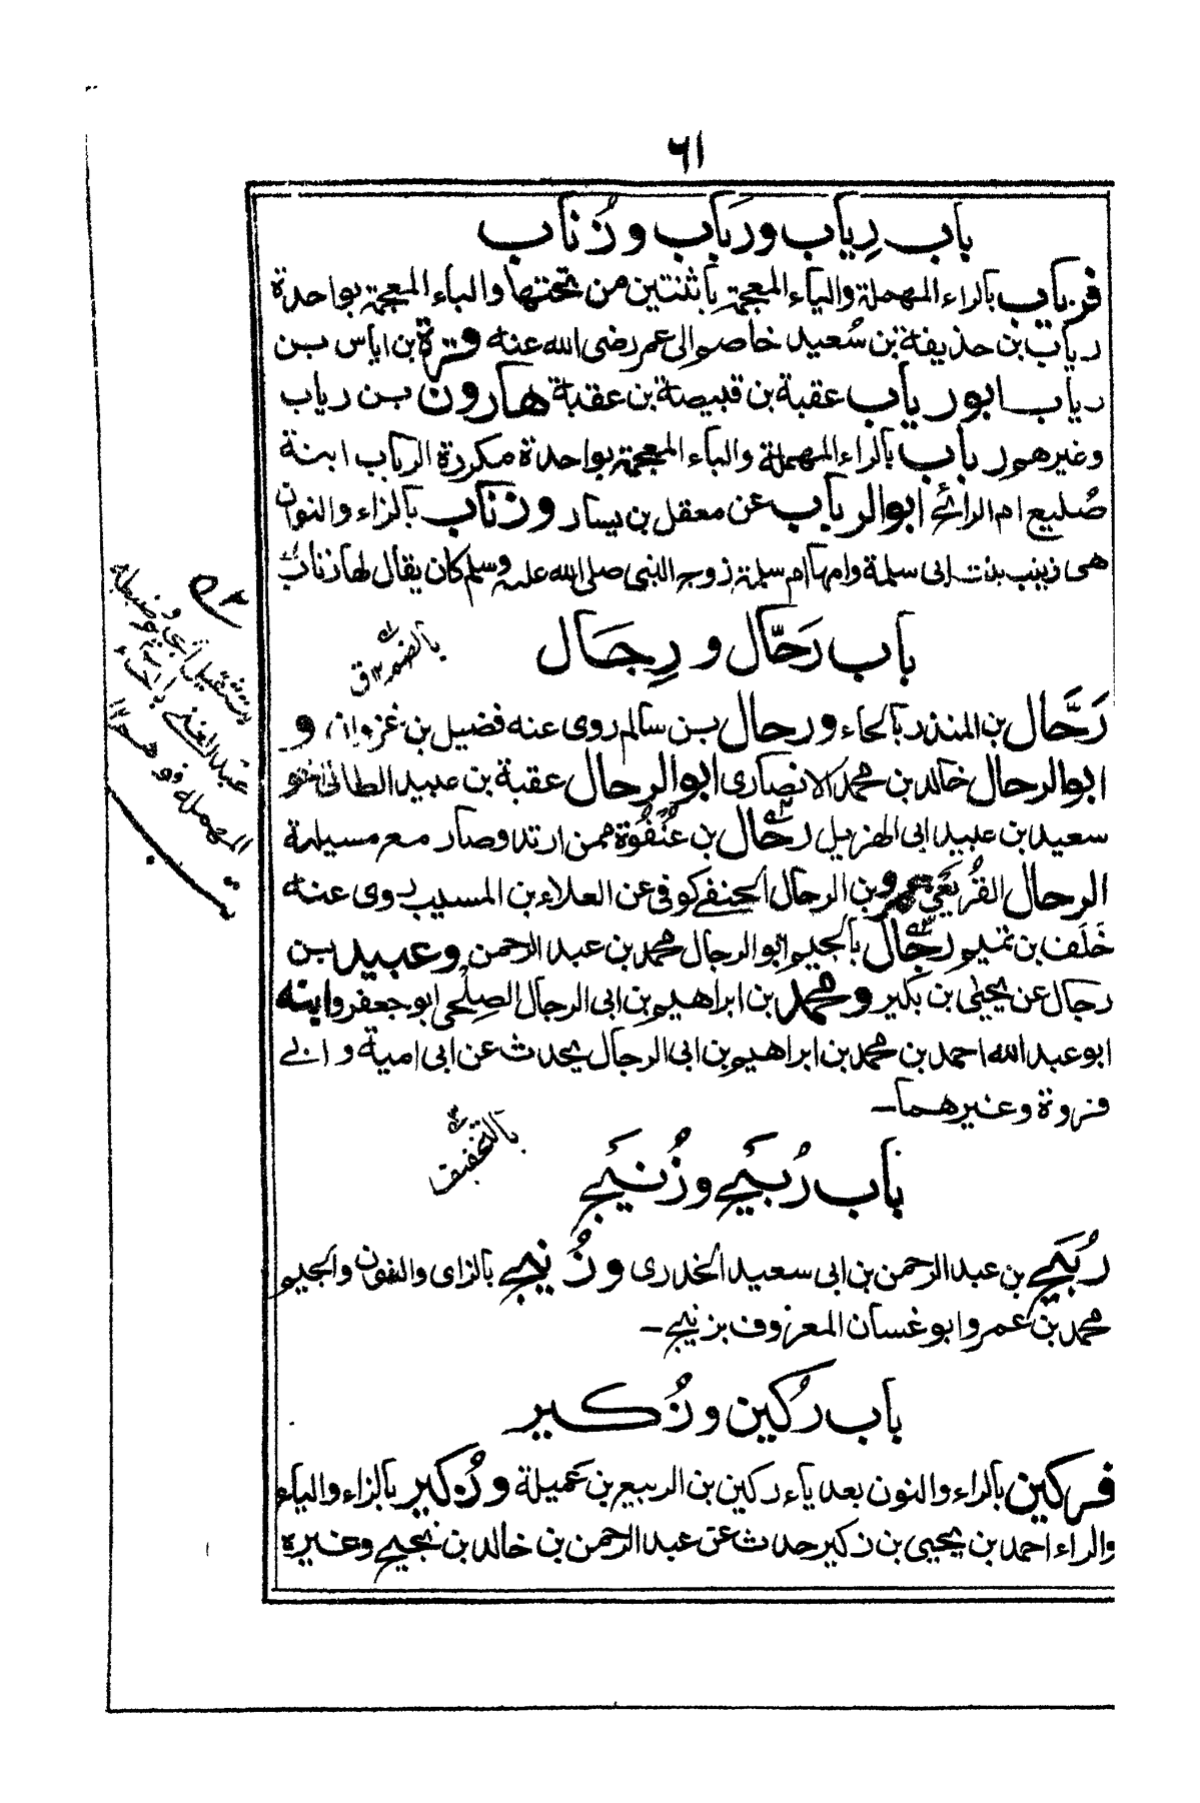 ٦١
باب رِياب ورَباب وزُناب
فرياب بالراء المهملة والياء المعجمة باثنتين من تحتها والباء المعجمة بواحدة
رياب بن حذيفة بن سُعيد خاصم الى عمر رضى الله عنه وقرة بن اياس بن
رياب ابو رياب عقبة بن قبيصة بن عقبة هارون بن رياب
وغيرهم رباب بالراء المهملة والباء المعجمة بواحدة مكررة الرباب ابنة
صُليع ام الرائح ابو الرباب عن معقل بن يسار وزناب بالزاء والنون
هى زينب بنت ابى سلمة وامها ام سلمة زوج النبى صلى الله عليه وسلم كان يقال لها زناب
باب رَحّال ورِجَال
رَحَّال بن المنذر بالحاء ورحال بن سالم روى عنه فضيل بن غزوان و
ابو الرحال خالد بن محمد الانصارى ابو الرحال عقبة بن عبيد الطائى اخو
سعيد بن عبيد ابى الهزيل رحّال بن عُنْفُوة ممن ارتد وصار مع مسيلمة
الرحال القُرَيعى عمرو بن الرحال الحنفى كوفى عن العلاء بن المسيب روى عنه
خَلَف بن تميم رجّال بالجيم ابو الرجال محمد بن عبد الرحمن وعبيد بن
رجال عن يحيٰى بن بكير ومحمد بن ابراهيم بن ابى الرجال الصِلْحى ابو جعفر وابنه
ابو عبد الله احمد بن محمد بن ابراهيم بن ابى الرجال يحدث عن ابى امية وابى
فروة وغيرهما۔
باب رُبَيْح وزُنَيْج
رُبَيْح بن عبد الرحمن بن ابى سعيد الخدرى وزُنيج بالزاى والنون والجيم
محمد بن عمرو ابو غسان المعروف بزنيج۔
باب رُكين وزُكير
فركين بالراء والنون بعد ياء ركين بن الربيع بن عَميلة وزُكير بالزاء والياء
والراء احمد بن يحيى بن زكير حدث عن عبد الرحمن بن خالد بن نجيح وغيره
بالضم ١٢ ق
بالتخفيف
عبد الغنى بالحاء
المهملة فوهم ١٢